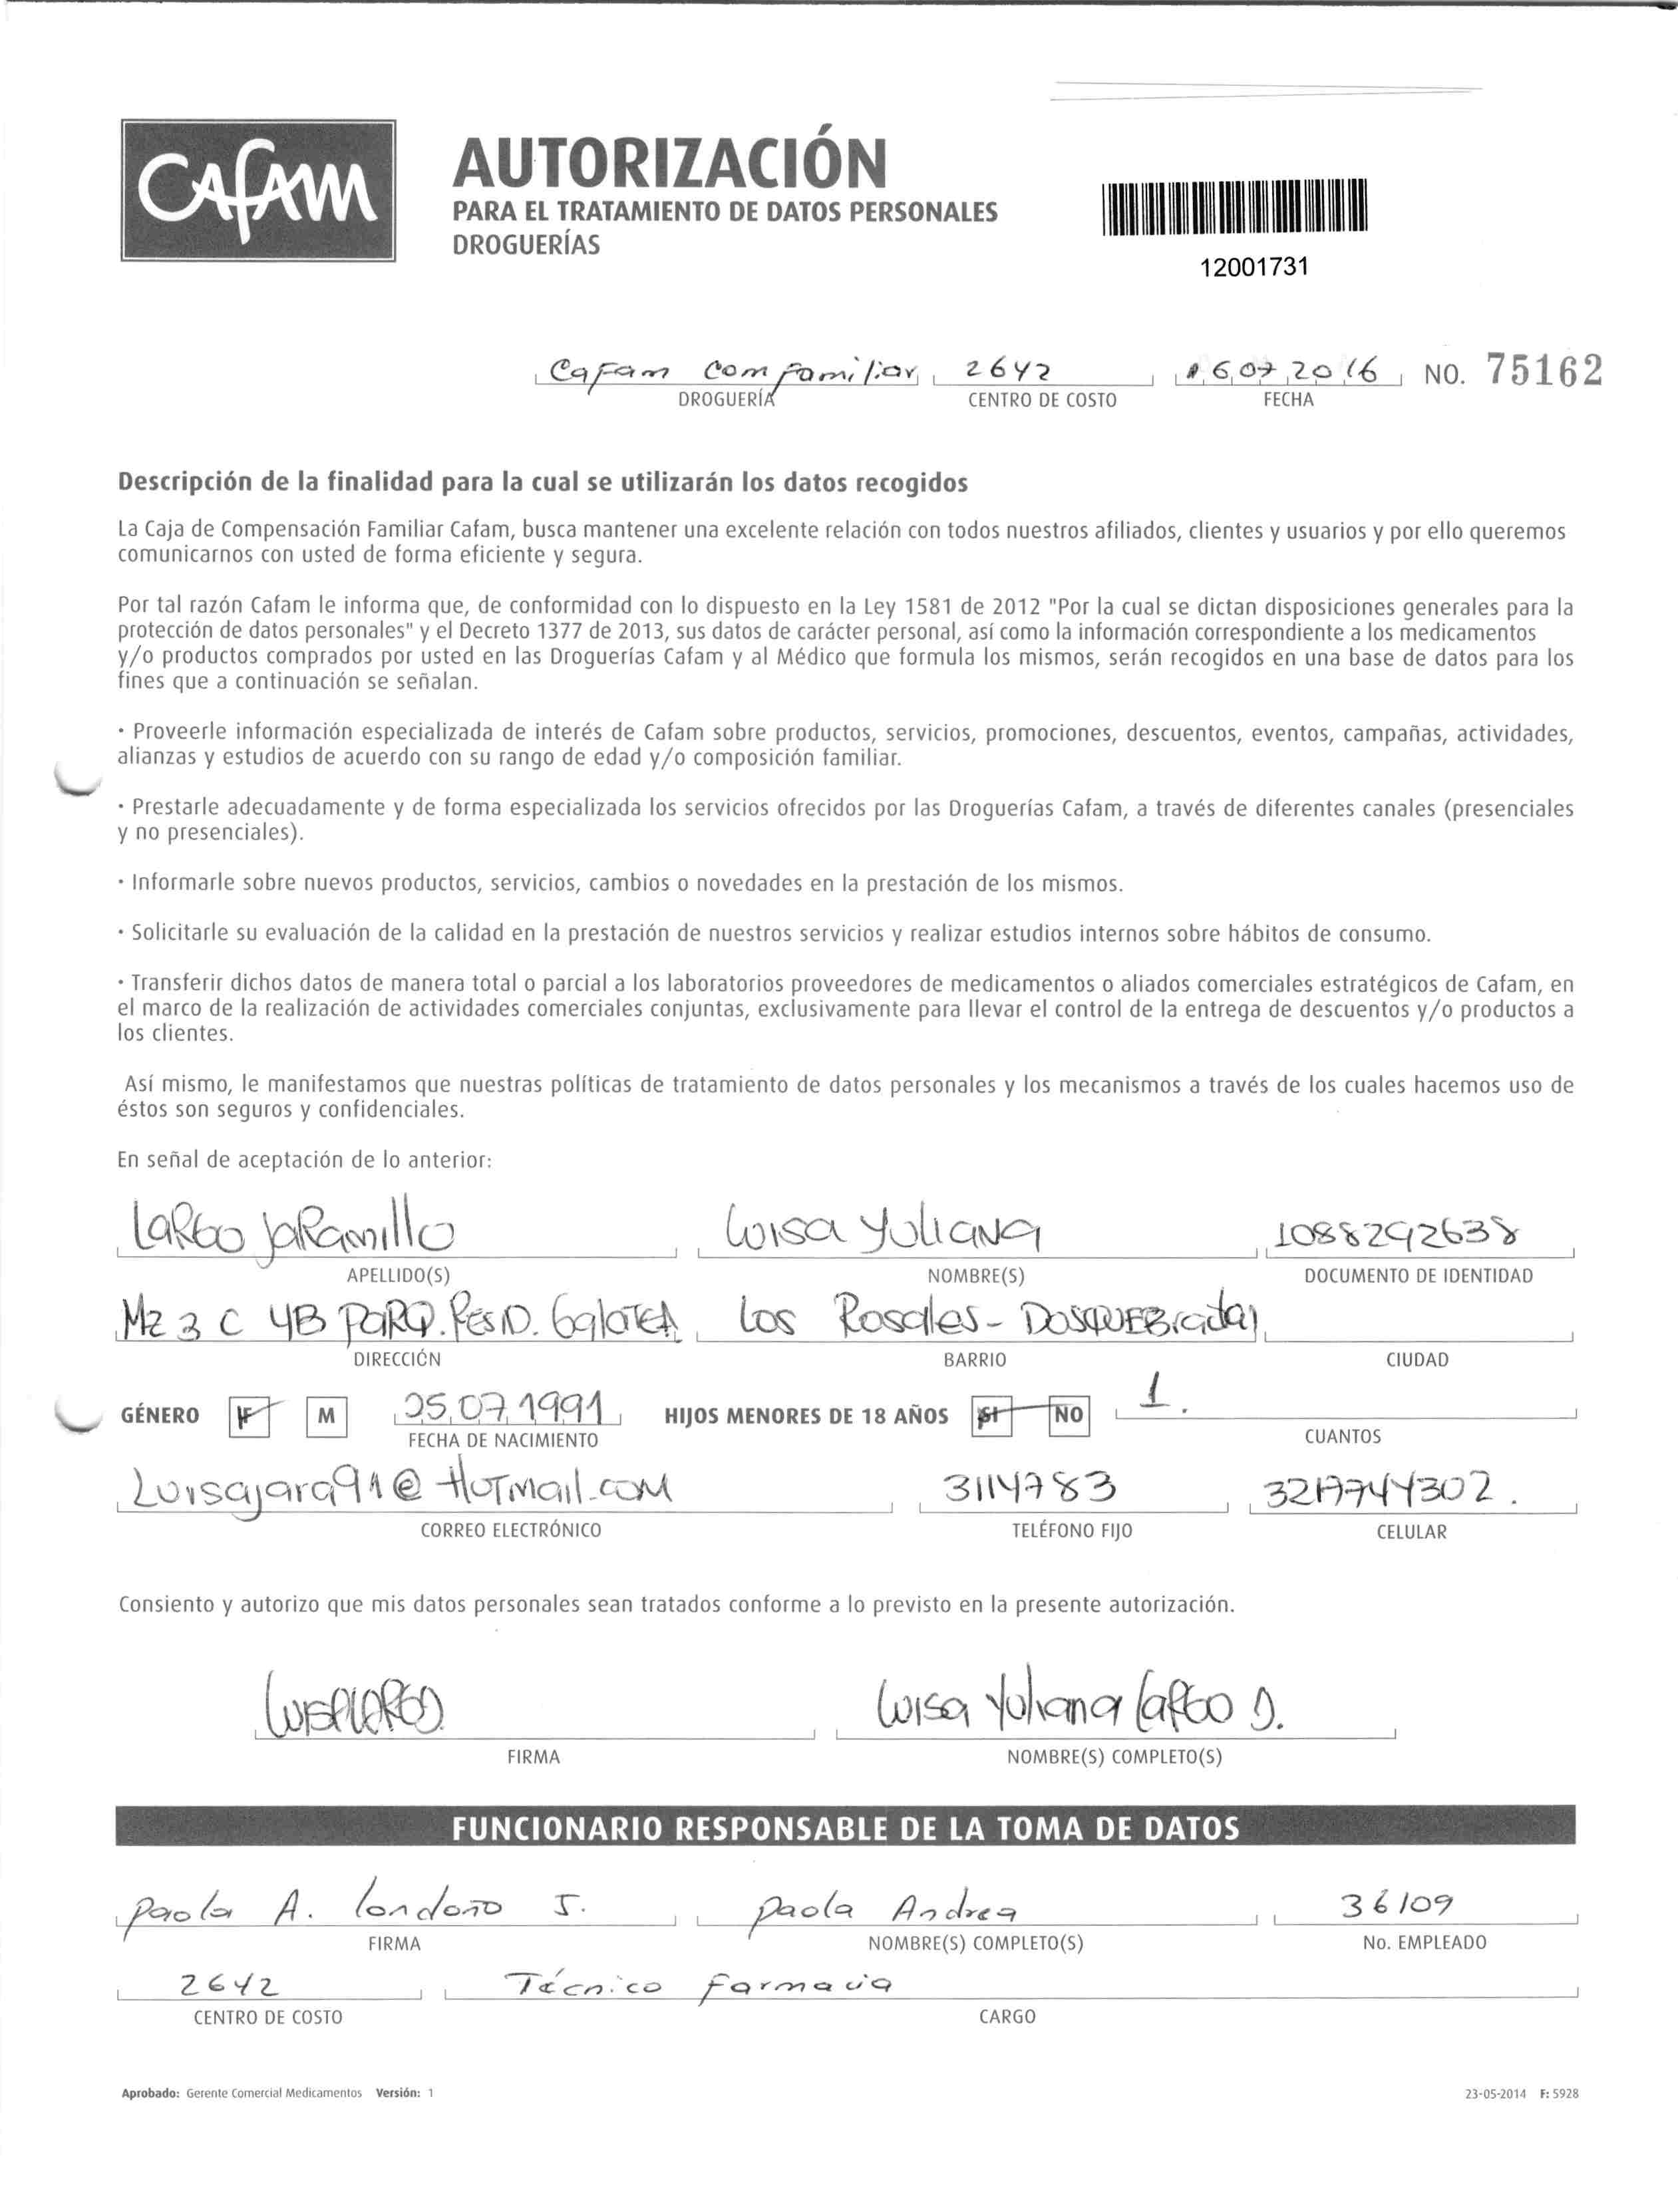 CAFAM
AUTORIZACIÓN
PARA EL TRATAMIENTO DE DATOS PERSONALES
DROGUERÍAS
12001731
Cafam Comfamiliar 2642 16 07 2016 NO. 75162
DROGUERÍA CENTRO DE COSTO FECHA
Descripción de la finalidad para la cual se utilizarán los datos recogidos
La Caja de Compensación Familiar Cafam, busca mantener una excelente relación con todos nuestros afiliados, clientes y usuarios y por ello queremos
comunicarnos con usted de forma eficiente y segura.
Por tal razón Cafam le informa que, de conformidad con lo dispuesto en la Ley 1581 de 2012 "Por la cual se dictan disposiciones generales para la
protección de datos personales" y el Decreto 1377 de 2013, sus datos de carácter personal, así como la información correspondiente a los medicamentos
y/o productos comprados por usted en las Droguerías Cafam y al Médico que formula los mismos, serán recogidos en una base de datos para los
fines que a continuación se señalan.
· Proveerle información especializada de interés de Cafam sobre productos, servicios, promociones, descuentos, eventos, campañas, actividades,
alianzas y estudios de acuerdo con su rango de edad y/o composición familiar.
· Prestarle adecuadamente y de forma especializada los servicios ofrecidos por las Droguerías Cafam, a través de diferentes canales (presenciales
y no presenciales).
· Informarle sobre nuevos productos, servicios, cambios o novedades en la prestación de los mismos.
· Solicitarle su evaluación de la calidad en la prestación de nuestros servicios y realizar estudios internos sobre hábitos de consumo.
· Transferir dichos datos de manera total o parcial a los laboratorios proveedores de medicamentos o aliados comerciales estratégicos de Cafam, en
el marco de la realización de actividades comerciales conjuntas, exclusivamente para llevar el control de la entrega de descuentos y/o productos a
los clientes.
Así mismo, le manifestamos que nuestras políticas de tratamiento de datos personales y los mecanismos a través de los cuales hacemos uso de
éstos son seguros y confidenciales.
En señal de aceptación de lo anterior:
Largo Jaramillo Luisa Yuliana 1088292638
APELLIDO(S) NOMBRE(S) DOCUMENTO DE IDENTIDAD
Mz 3 C 4B PARQ. RESID. Galatea Los Rosales - DOSQUEBradas
DIRECCIÓN BARRIO CIUDAD
GÉNERO F M 25 07 1991 HIJOS MENORES DE 18 AÑOS SI NO 1.
FECHA DE NACIMIENTO CUANTOS
Luisajara91@Hotmail.com 3114783 3217744302.
CORREO ELECTRÓNICO TELÉFONO FIJO CELULAR
Consiento y autorizo que mis datos personales sean tratados conforme a lo previsto en la presente autorización.
LuisaLargo Luisa Yuliana Largo J.
FIRMA NOMBRE(S) COMPLETO(S)
FUNCIONARIO RESPONSABLE DE LA TOMA DE DATOS
Paola A. Londoño J. Paola Andrea 36109
FIRMA NOMBRE(S) COMPLETO(S) No. EMPLEADO
2642 Técnico Farmacia
CENTRO DE COSTO CARGO
Aprobado: Gerente Comercial Medicamentos Versión: 1 23-05-2014 F: 5928